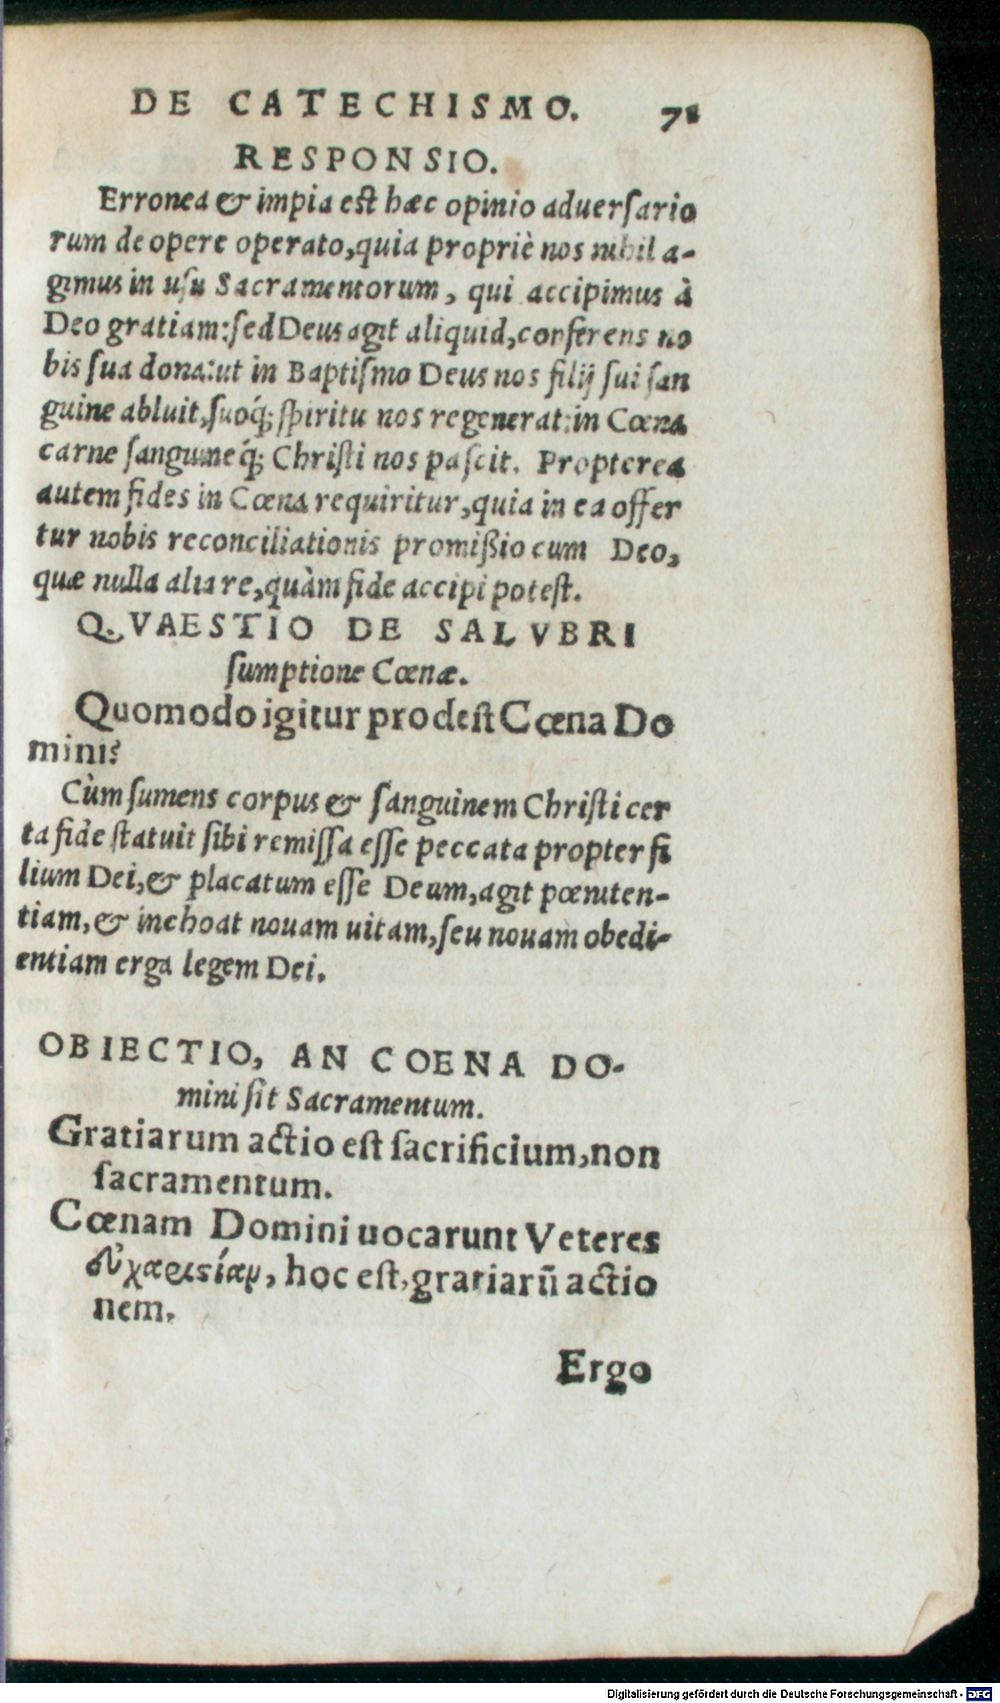 DE CATECHISMO. 71
RESPONSIO.
Erronea & impia est hæc opinio aduerſario
rum de opere operato, quia propriè nos nihil a-
gimus in uſu Sacramentorum, qui accipimus à
Deo gratiam: ſed Deus agit aliquid, conferens no
bis ſua dona: ut in Baptiſmo Deus nos filij ſui ſan
guine abluit, ſuoq́; ſpiritu nos regenerat: in Cœna
carne ſanguineq́; Chriſti nos paſcit. Propterea
autem fides in Cœna requiritur, quia in ea offer
tur nobis reconciliationis promiſsio cum Deo,
quæ nulla alia re, quàm fide accipi poteſt.
QVAESTIO DE SALVBRI
ſumptione Cœnæ.
Quomodo igitur prodeſt Cœna Do
mini?
Cùm ſumens corpus & ſanguinem Chriſti cer
ta fide ſtatuit ſibi remiſſa eſſe peccata propter fi
lium Dei, & placatum eſſe Deum, agit pœniten-
tiam, & inchoat nouam uitam, ſeu nouam obedi-
entiam erga legem Dei.
OBIECTIO, AN COENA DO-
mini ſit Sacramentum.
Gratiarum actio eſt ſacrificium, non
ſacramentum.
Cœnam Domini uocarunt Veteres
εὐχαριστίαν, hoc eſt, gratiarū actio
nem.
Ergo
Digitalisierung gefördert durch die Deutsche Forschungsgemeinschaft - DFG